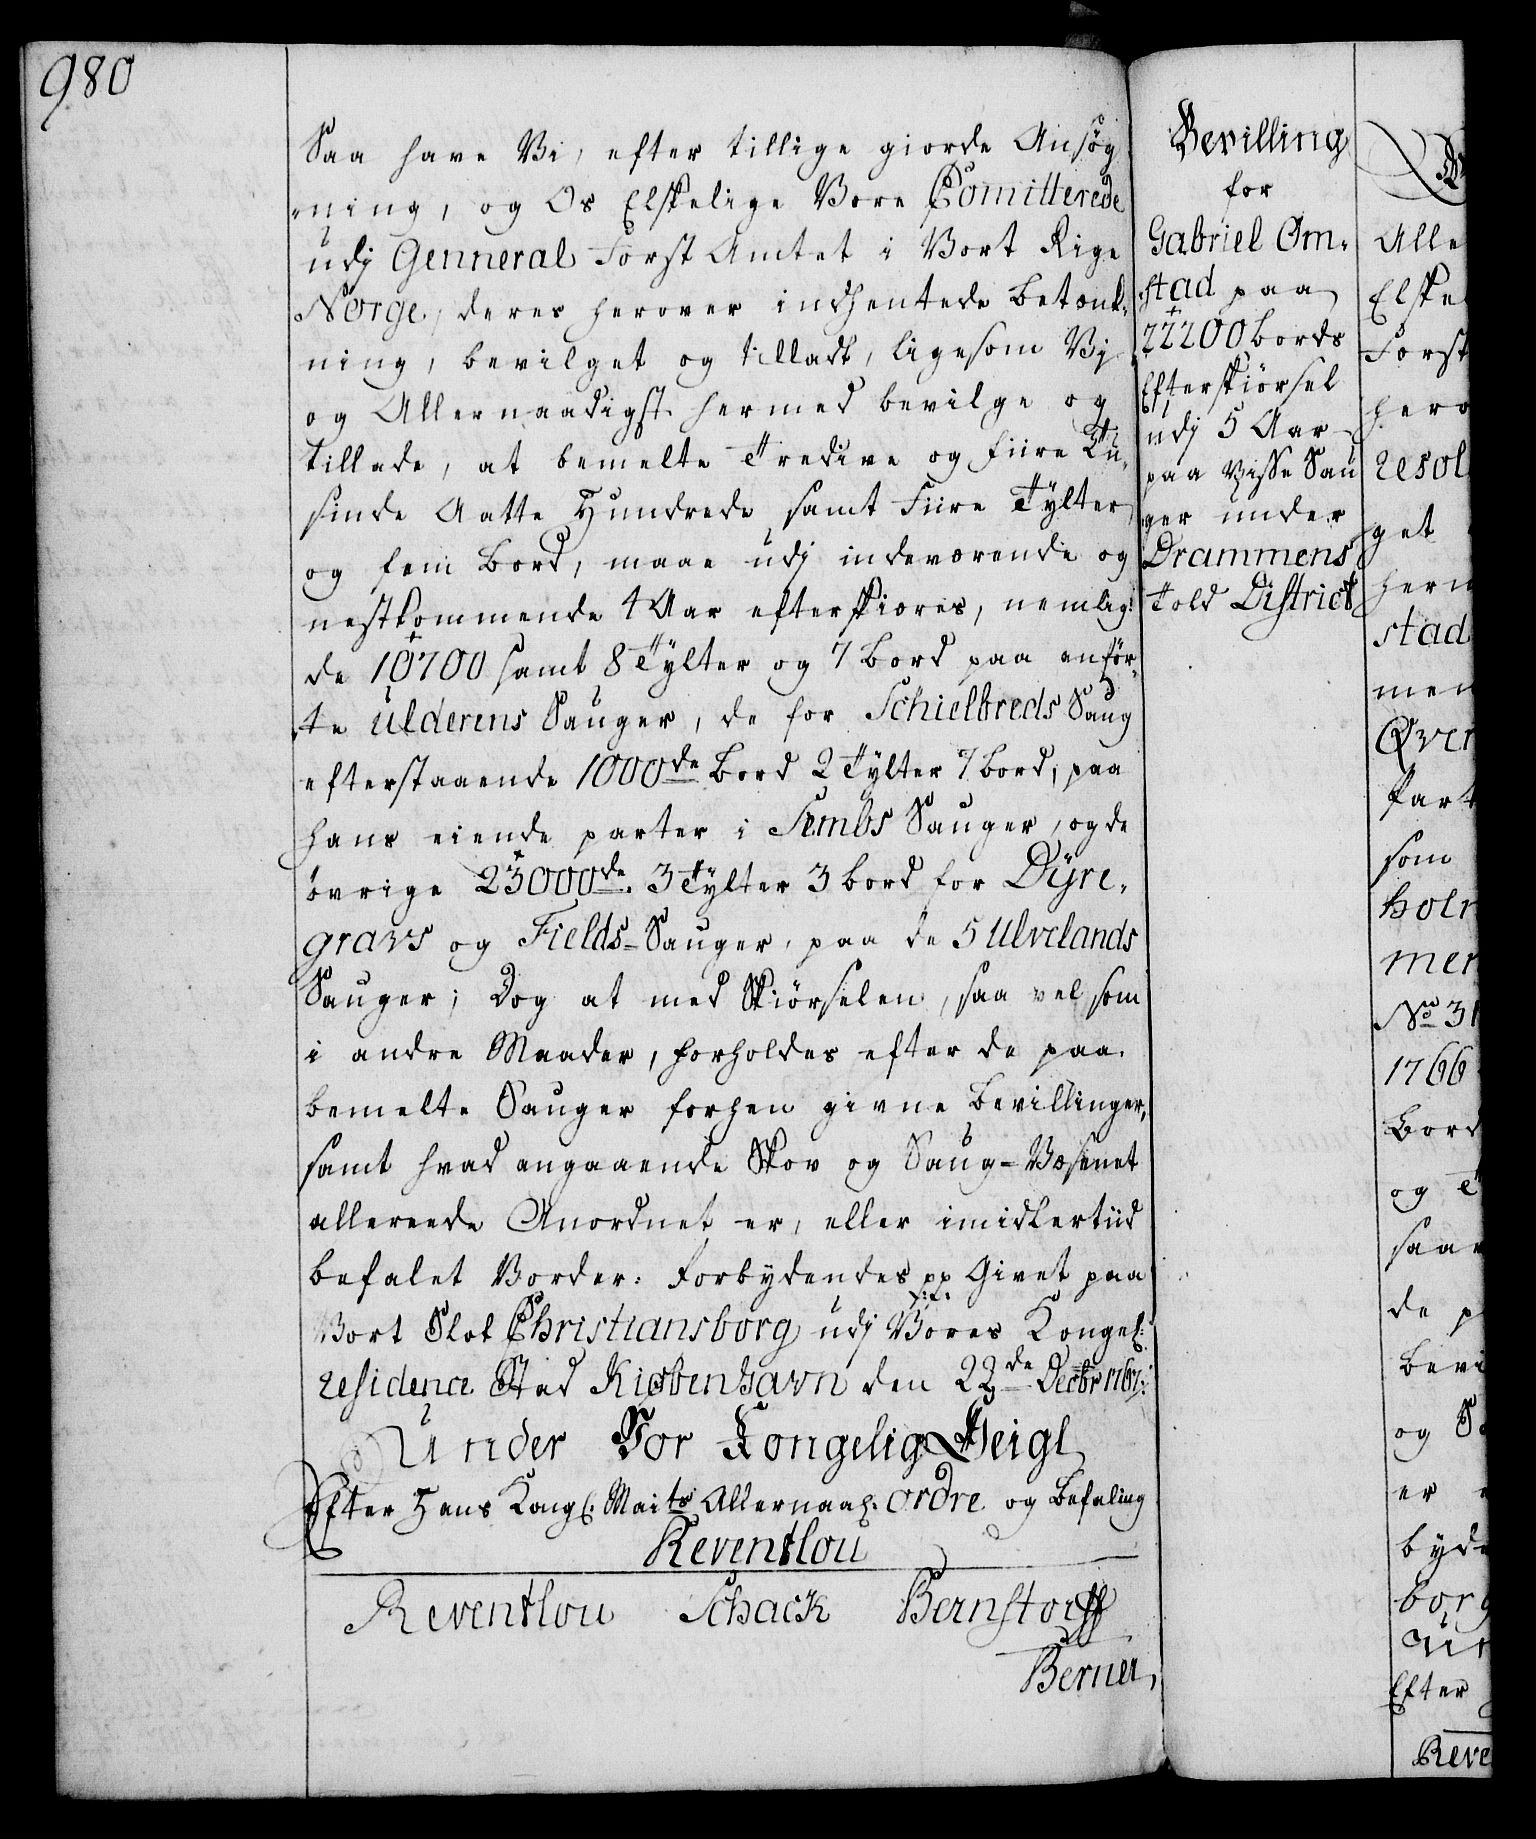 980
Saa have Vi, efter tillige giorde Ansøg
„ning, og Os Elskelige Vore Comitterede
udj Genneral Forst Amtet i Vort Rige
Norge, deres herover indhentede betænk„
ning, bevilget og tilladt, ligesom Vj
og Allernaadigst hermed bevilge og
tillade, at bemelte Tredive og fiire Tu„
sinde Aatte Hundrede samt Fiire Tylter
og fem Bord, maae udj indeværende og
nestkommende 4 Aar efterskiæres, nemlig:
de 10700 samt 8 Tylter og 7 bord paa anfør„
te Ulderens Sauger, de for Schielbreds Saug
efterstaaende 1000de Bord 2 Tylter 7 bord, paa
hans eiende parter i Sembs Sauger, og de
øvrige 23000de. 3 Tylter 3 bord for Dÿre„
gravs og Fields-Sauger, paa de 5 Ulvelands
Sauger; Dog at med Skiørselen, saa vel som
i andre Maader, forholdes efter de paa
bemelte Sauger forhen givne Bevillinger,
samt hvad angaaende Skov og Saug-Væsenet
allereede Anordnet er, eller imidlertiid
befalet Vorder: Forbydendes pp Givet paa
Vort Slot Christiansborg udj Vores Kongel:
residence Stad Kiøbenhavn den 22de Decbr 1767:
Under Vor Kongelig Seigl
Efter Hans Kongl: Maits Allernaad: ordre og Befaling
Reventlou
Reventlou Schack Bernstorff
Berner,
Bevilling
for
Gabriel Om„
stad paa
22200 bords
Efterskiørsel
udj 5 Aar
paa visse Sau
ger under
Drammens
Told District
Alle
Elske
Forst
hero
resol
get
herm
stad
men
Øver
Part
som
holm
mer
No 31
1766
Bord
og T
saar
de p
bevi
og S
er
byde
borg
Un
Efter
Reve